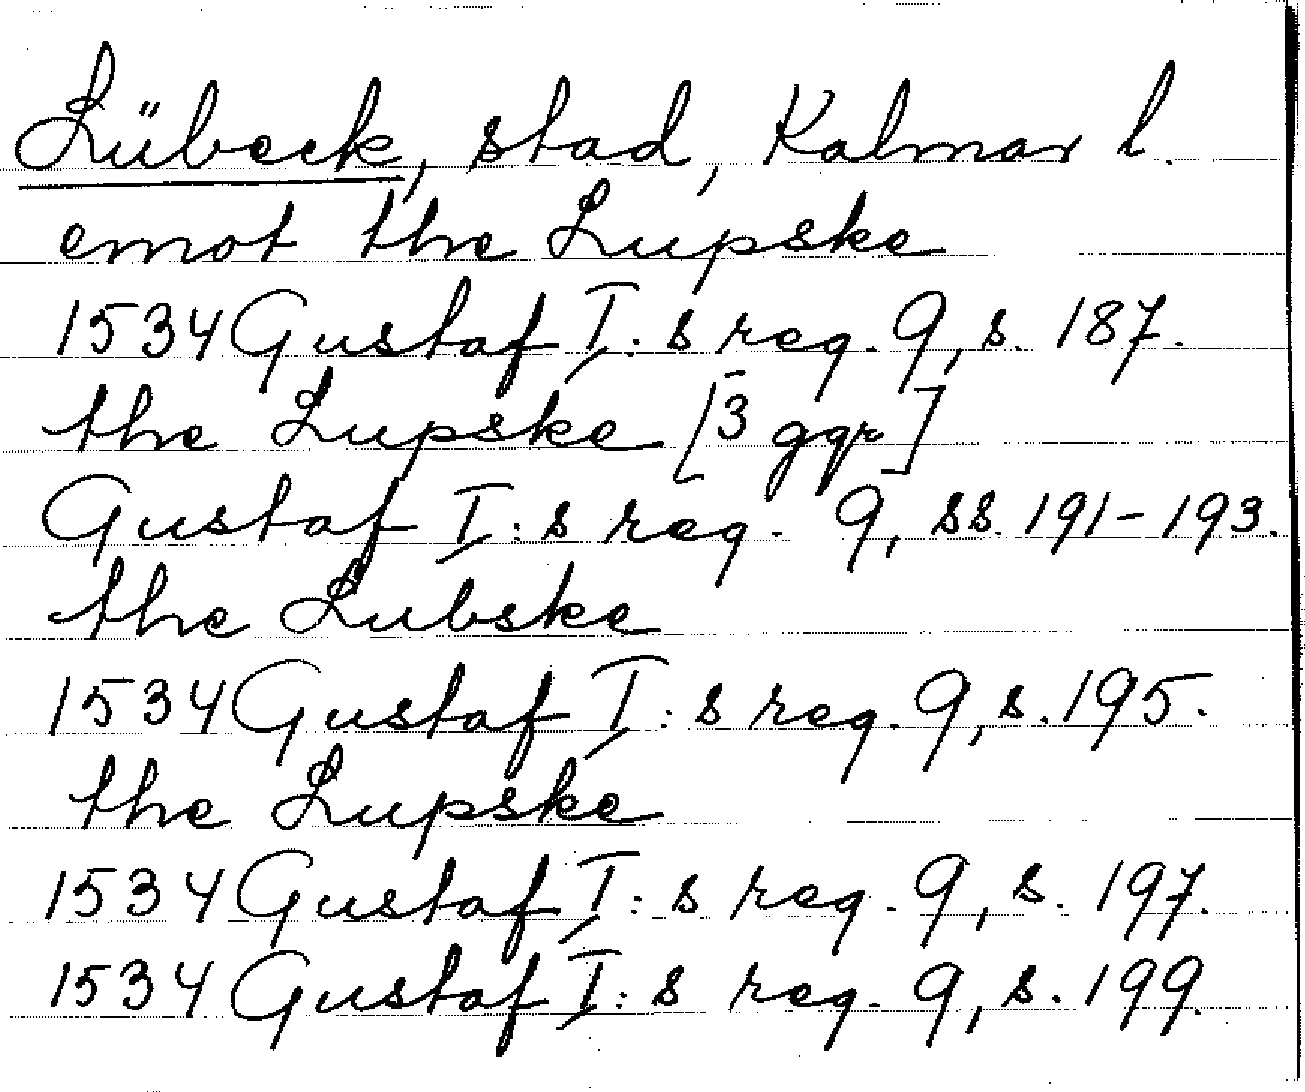 Lübeck, stad, Kalmar l.
emot the Lupske
1534 Gustaf I:s reg. 9, s. 187.
the Lupske [3 ggr]
Gustaf I:s reg. 9, ss. 191-193.
the Lubske
1534 Gustaf I:s reg. 9, s. 195.
the Lupske
1534 Gustaf I:s reg. 9, s. 197.
1534 Gustaf I:s reg. 9, s. 199.